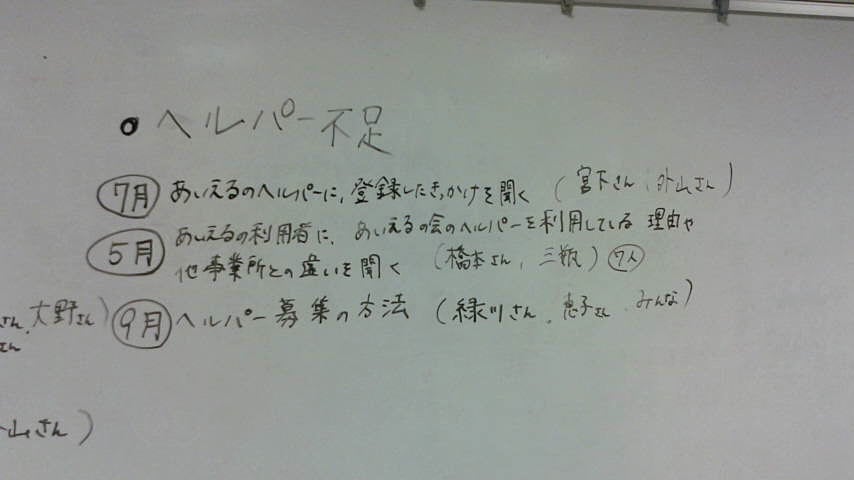 ● ヘルパー不足
7月 あいえるのヘルパーに、登録したきっかけを聞く (宮下さん、外山さん)
5月 あいえるの利用者に、あいえるの会のヘルパーを利用している理由や
他事業所との違いを聞く (橋本さん、三瓶) 7人
さん、大野さん) 9月 ヘルパー募集の方法 (緑川さん、恵子さん、みんな)
さん
山さん)